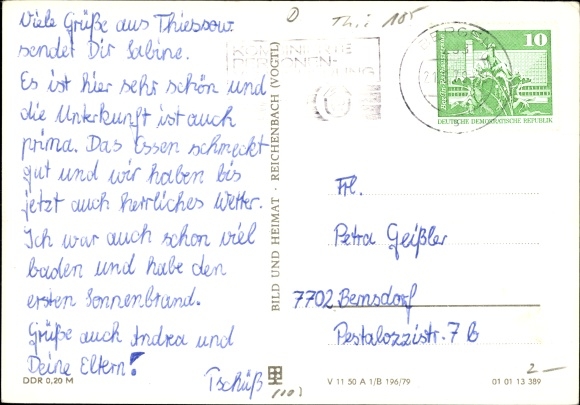 Viele Grüße aus Thiessow
sendet Dir Sabine.
Es ist hier sehr schön und
die Unterkunft ist auch
prima. Das Essen schmeckt
gut und wir haben bis
jetzt auch herrliches Wetter.
Ich war auch schon viel
baden und habe den
ersten Sonnenbrand.
Grüße auch Andrea und
Deine Eltern!
Tschüß
DDR 0,20 M
BILD UND HEIMAT · REICHENBACH (VOGTL)
D Th.i 105
BERGEN
10
DEUTSCHE DEMOKRATISCHE REPUBLIK
Frl.
Petra Geißler
7702 Bernsdorf
Pestalozzistr. 7 b
V 11 50 A 1/B 196/79
01 01 13 389
2-